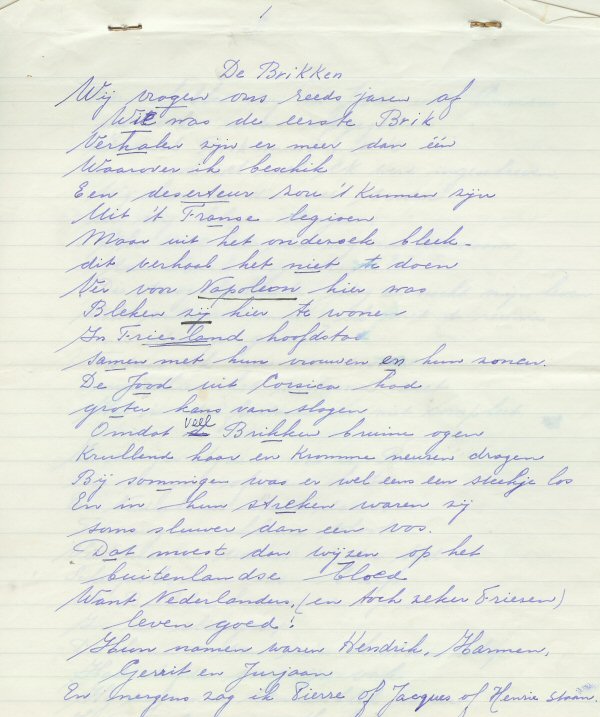 1
De Brikken
Wij vragen ons reeds jaren af
Wie was de eerste Brik
Verhalen zijn er meer dan één
Waarover ik beschik
Een deserteur zou 't kunnen zijn
Uit 't Franse legioen
Maar uit het onderzoek bleek
dit verhaal het niet te doen
Ver voor Napoleon hier was
Bleken zij hier te wonen
In Friesland hoofdstad
samen met hun vrouwen en hun zonen.
De Jood uit Corsica had
groter kans van slagen
Omdat veel Brikken bruine ogen
Krullend haar en Kromme neuzen dragen
Bij sommigen was er wel eens een steekje los
En in hun streken waren zij
soms sluwer dan een vos.
Dat moest dan wijzen op het
buitenlandse bloed
Want Nederlanders, (en toch zeker Friezen)
leven goed!
Hun namen waren Hendrik, Harmen,
Gerrit en Jurjaan
En nergens zag ik Pierre of Jacques of Henrie staan.